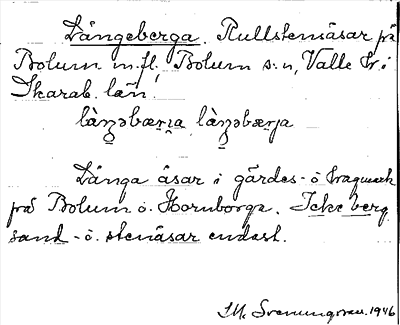 Långeberga. Rullstensåsar på
Bolum m. fl. Bolum s:n, Valle hr i
Skarab. län.
làŋəbæri̯a, làŋəbærja
Långa åsar i gärdes- o. hagmark
på Bolum o. Hornborga. Icke berg
sand- o. stenåsar endast.
1946